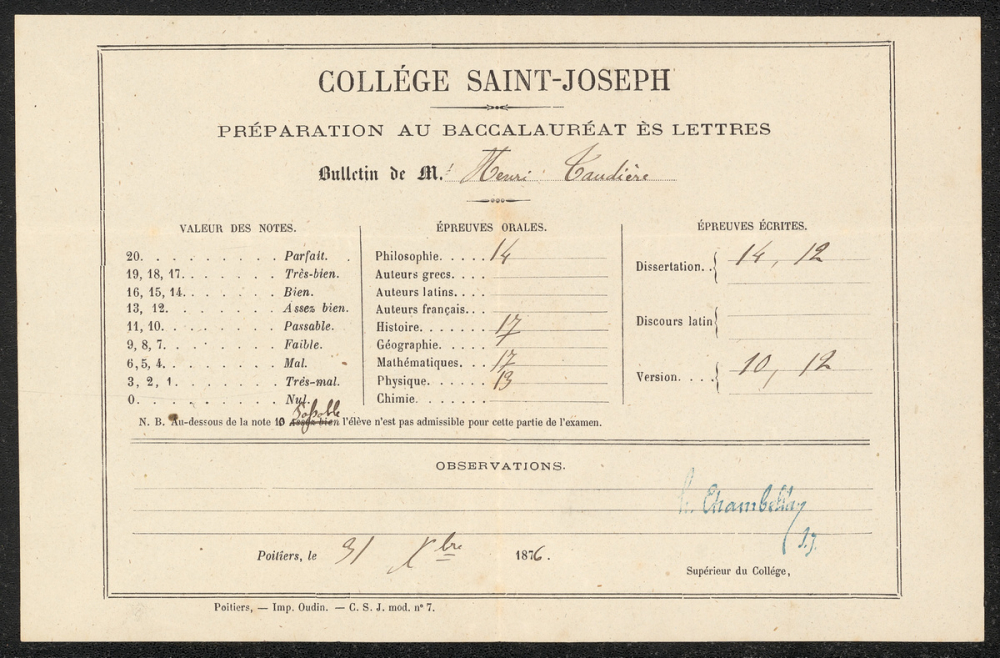 COLLÉGE SAINT-JOSEPH
PRÉPARATION AU BACCALAURÉAT ÈS LETTRES
Bulletin de M.r Henri Taudière
VALEUR DES NOTES.
20. . . . . . . . . Parfait.
19, 18, 17. . . . . . . Très-bien.
16, 15, 14. . . . . . . Bien.
13, 12. . . . . . . . Assez bien.
11, 10. . . . . . . . Passable.
9, 8, 7. . . . . . . . Faible.
6, 5, 4. . . . . . . . Mal.
3, 2, 1. . . . . . . . Trés-mal.
0. . . . . . . . . Nul.
ÉPREUVES ORALES.
Philosophie. . . . . 14
Auteurs grecs. . . .
Auteurs latins. . . .
Auteurs français. . .
Histoire. . . . . . 17
Géographie. . . . .
Mathématiques. . . . 17
Physique. . . . . . 13
Chimie. . . . . .
ÉPREUVES ÉCRITES.
Dissertation. . { 14, 12
Discours latin {
Version. . . . { 10, 12
Passable
N. B. Au-dessous de la note 10 assez bien l'élève n'est pas admissible pour cette partie de l'examen.
OBSERVATIONS.
h. Chambellay
s.j.
Poitiers, le 31 Xbre 1876.
Supérieur du Collége,
Poitiers, — Imp. Oudin. — C. S. J. mod. n° 7.